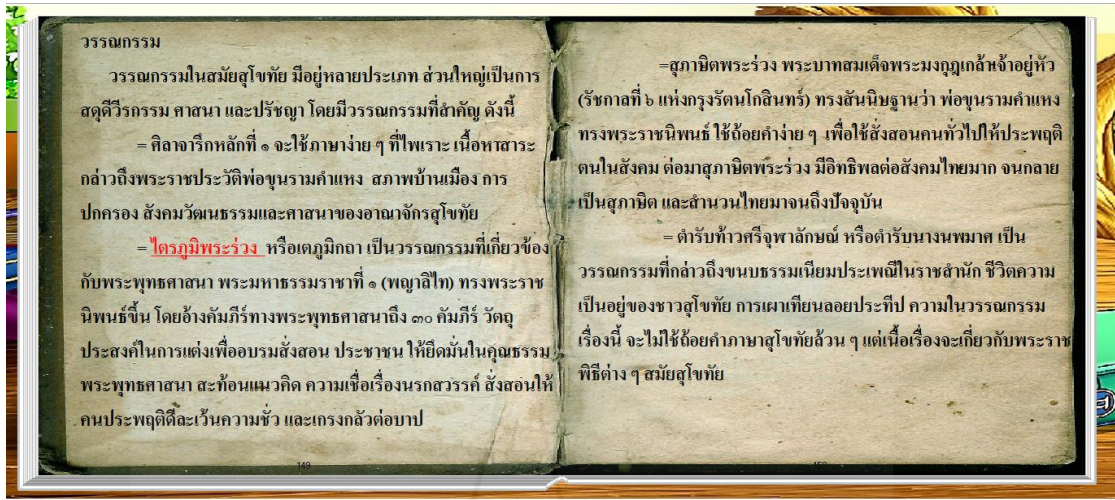 วรรณกรรม
วรรณกรรมในสมัยสุโขทัย มีอยู่หลายประเภท ส่วนใหญ่เป็นการ
สดุดีวีรกรรม ศาสนา และปรัชญา โดยมีวรรณกรรมที่สำคัญ ดังนี้
= ศิลาจารึกหลักที่ ๑ จะใช้ภาษาง่าย ๆ ที่ไพเราะ เนื้อหาสาระ
กล่าวถึงพระราชประวัติพ่อขุนรามคำแหง สภาพบ้านเมือง การ
ปกครอง สังคมวัฒนธรรมและศาสนาของอาณาจักรสุโขทัย
= ไตรภูมิพระร่วง หรือเตภูมิกถา เป็นวรรณกรรมที่เกี่ยวข้อง
กับพระพุทธศาสนา พระมหาธรรมราชาที่ ๑ (พญาลิไท) ทรงพระราช
นิพนธ์ขึ้น โดยอ้างคัมภีร์ทางพระพุทธศาสนาถึง ๓๐ คัมภีร์ วัตถุ
ประสงค์ในการแต่งเพื่ออบรมสั่งสอน ประชาชน ให้ยึดมั่นในคุณธรรม
พระพุทธศาสนา สะท้อนแนวคิด ความเชื่อเรื่องนรกสวรรค์ สั่งสอนให้
คนประพฤติดีละเว้นความชั่ว และเกรงกลัวต่อบาป
149
=สุภาษิตพระร่วง พระบาทสมเด็จพระมงกุฎเกล้าเจ้าอยู่หัว
(รัชกาลที่ ๖ แห่งกรุงรัตนโกสินทร์) ทรงสันนิษฐานว่า พ่อขุนรามคำแหง
ทรงพระราชนิพนธ์ ใช้ถ้อยคำง่าย ๆ เพื่อใช้สั่งสอนคนทั่วไปให้ประพฤติ
ตนในสังคม ต่อมาสุภาษิตพระร่วง มีอิทธิพลต่อสังคมไทยมาก จนกลาย
เป็นสุภาษิต และสำนวนไทยมาจนถึงปัจจุบัน
= ตำรับท้าวศรีจุฬาลักษณ์ หรือตำรับนางนพมาศ เป็น
วรรณกรรมที่กล่าวถึงขนบธรรมเนียมประเพณีในราชสำนัก ชีวิตความ
เป็นอยู่ของชาวสุโขทัย การเผาเทียนลอยประทีป ความในวรรณกรรม
เรื่องนี้ จะไม่ใช้ถ้อยคำภาษาสุโขทัยล้วน ๆ แต่เนื้อเรื่องจะเกี่ยวกับพระราช
พิธีต่าง ๆ สมัยสุโขทัย
150